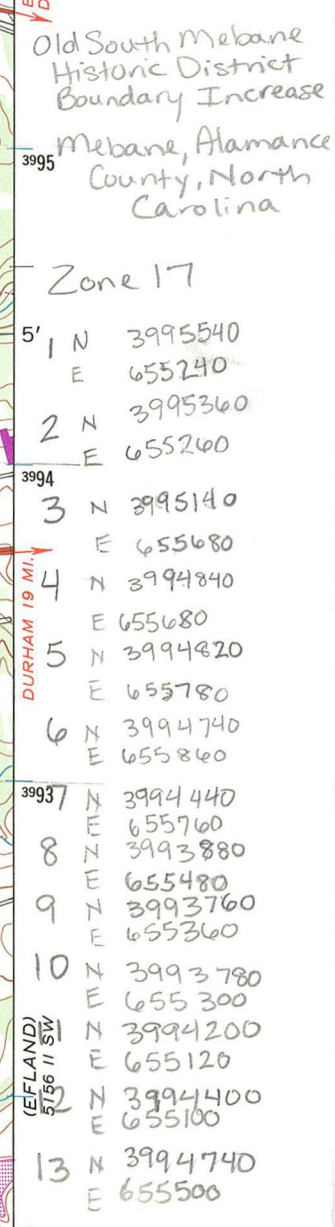 Old South Mebane
Historic District
Boundary Increase
Mebane, Alamance
3995
County, North
Carolina
Zone 17
5'
1 N 3995540
E 655240
2 N 3995360
E 655260
3994
3 N 3995140
E 655680
4 N 3994840
DURHAM 19 MI.
E 655680
5 N 3994820
E 655780
6 N 3994740
E 655860
3993
7 N 3994440
E 655760
8 N 3993880
E 655480
9 N 3993760
E 655360
10 N 3993780
E 655300
(EFLAND)
5156 II SW
11 N 3994200
E 655120
12 N 3994400
E 655100
13 N 3994740
E 655500